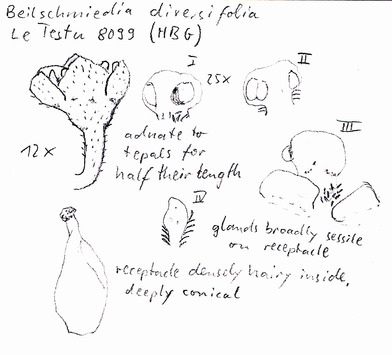 Beilschmiedia diversifolia
Le Testu 8099 (HBG)
I
II
25x
12x
adnate to
tepals for
half their length
III
IV
glands broadly sessile
on receptacle
receptacle densely hairy inside,
deeply conical